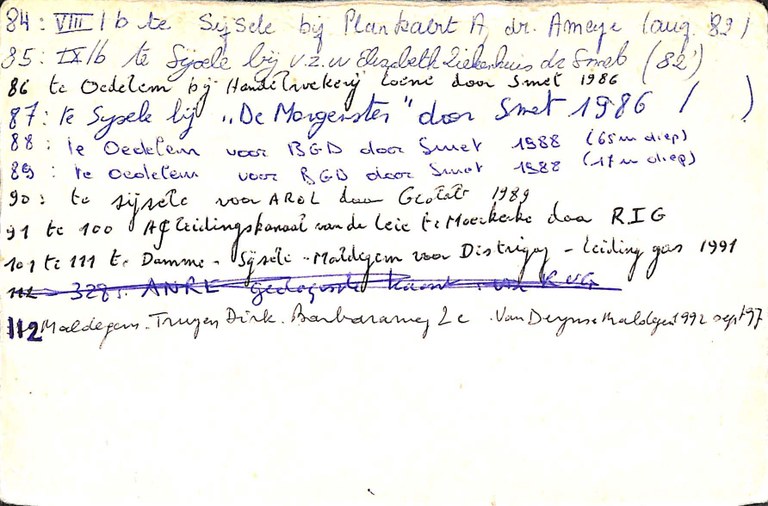 84: VIII/b te Sijsele bij Plankaert A, dr. Ameye (aug. 83)
85: IX/b te Sijsele bij v.z.w Elizabeth Ziekenhuis de Smet (82')
86 te Oedelem bij Handelkwekerij door Smet 1986
87: te Sysele bij "De Morgenster" door Smet 1986 ( )
88: te Oedelem voor BGD door Smet 1988 (65m diep)
89: te Oedelem voor BGD door Smet 1988 (17m diep)
90: te Sijsele voor AROL door 1989
91 te 100 Afleidingskanaal van de Leie te Moerkerke door R.I.G
101 te 111 te Damme - Sijsele - Maldegem voor Distrigaz - leiding gas 1991
112 - 328: ANRE geologische kaart : RUG
112 Maldegem. Truyen Dirk. Barbaraweg 2c . Van Deynse Maldegem 1992 sept '97